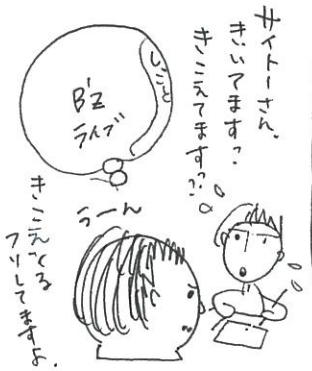 サイトーさん、
きいてます?
きこえてます??
しごと
B'z
ライブ
うーん
きこえてくる
フリしてますよ.